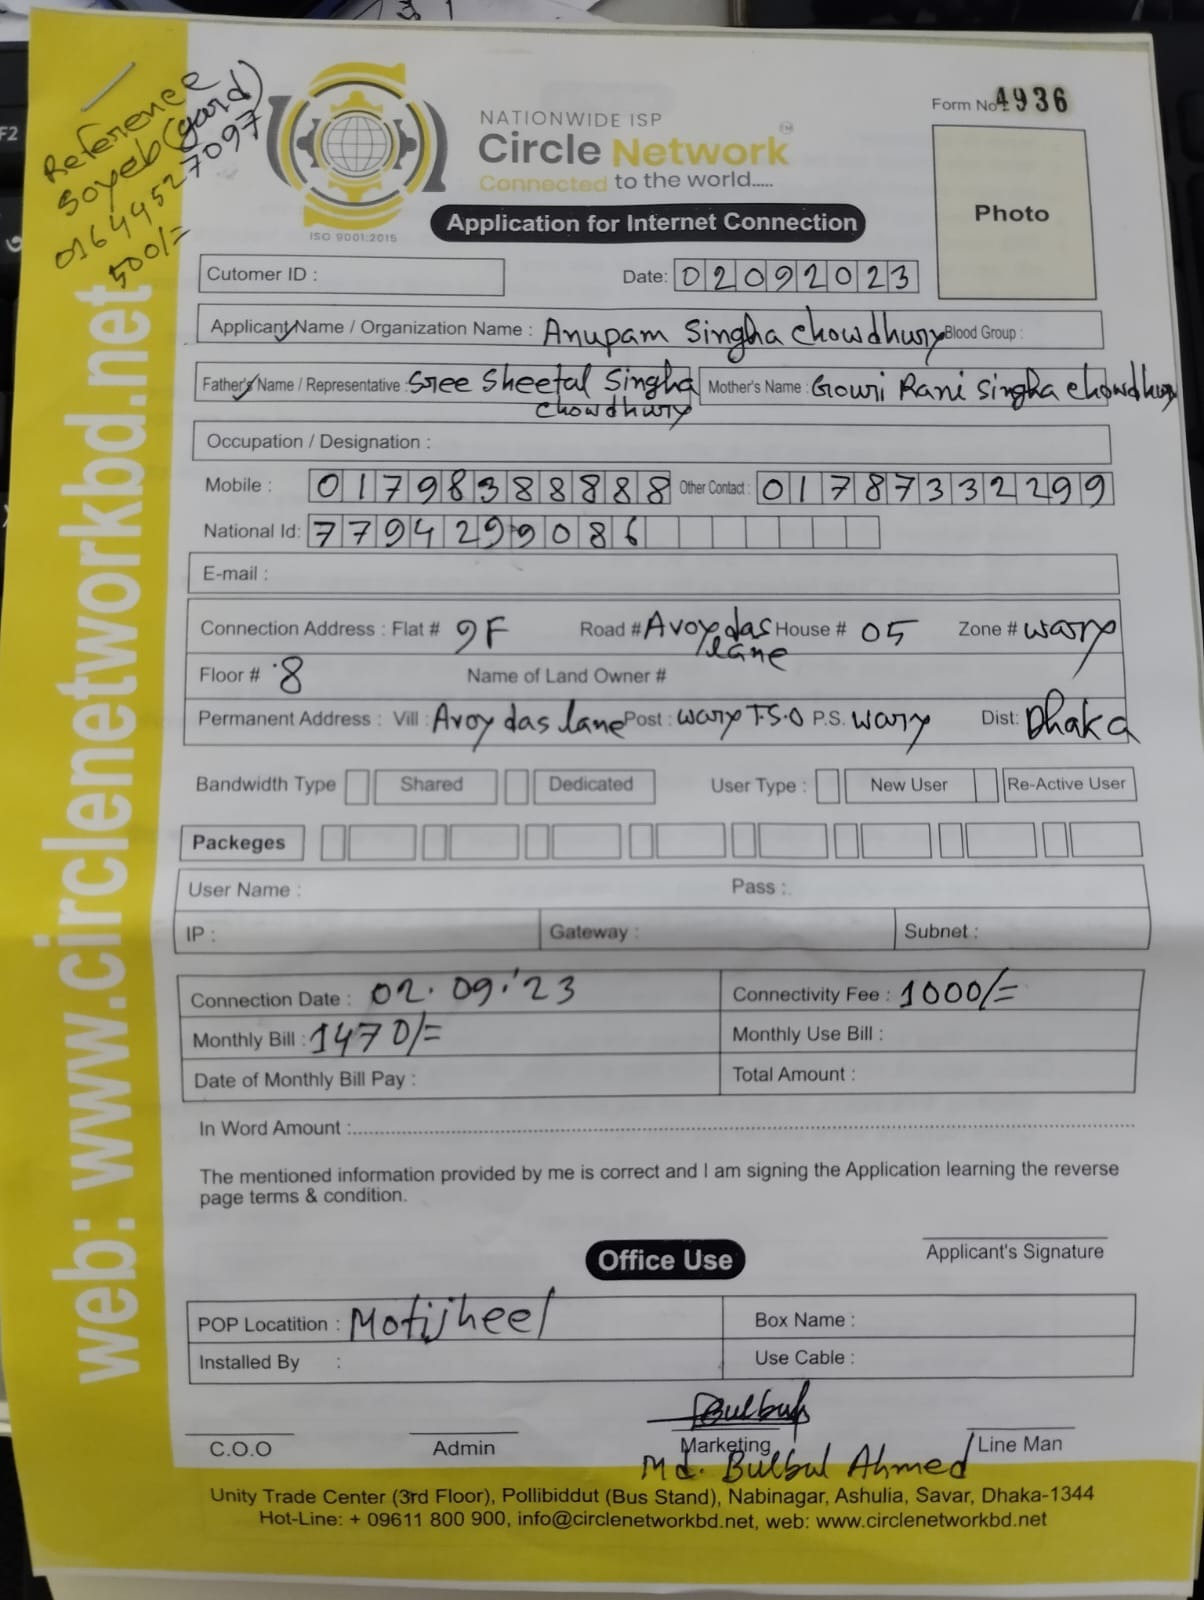 Reference
Soyeb (gard)
01644527097
500/=
F2
NATIONWIDE ISP
Circle Network
TM
Connected to the world.....
ISO 9001:2015
Form No 4936
Photo
Application for Internet Connection
Cutomer ID :
Date: 02092023
Applicant Name / Organization Name : Anupam Singha Chowdhury Blood Group :
Father's Name / Representative : Sree Sheetal Singha Chowdhury Mother's Name : Gouri Rani Singha Chowdhury
Occupation / Designation :
Mobile : 01798388888 Other Contact : 01787332299
National Id: 7794299086
E-mail :
Connection Address : Flat # 9F Road # Avoy das lane House # 05 Zone # wary
Floor # 8 Name of Land Owner #
Permanent Address : Vill : Avoy das lane Post : wary T.S.O P.S. wary Dist: Dhaka
Bandwidth Type Shared Dedicated User Type : New User Re-Active User
Packeges
User Name : Pass :
IP : Gateway : Subnet :
Connection Date : 02.09.'23 Connectivity Fee : 1000/=
Monthly Bill : 1470/= Monthly Use Bill :
Date of Monthly Bill Pay : Total Amount :
In Word Amount :
The mentioned information provided by me is correct and I am signing the Application learning the reverse
page terms & condition.
Applicant's Signature
Office Use
POP Locatition : Motijheel Box Name :
Installed By : Use Cable :
Bulbul
C.O.O Admin Marketing Line Man
Md. Bulbul Ahmed
Unity Trade Center (3rd Floor), Pollibiddut (Bus Stand), Nabinagar, Ashulia, Savar, Dhaka-1344
Hot-Line: + 09611 800 900, info@circlenetworkbd.net, web: www.circlenetworkbd.net
web: www.circlenetworkbd.net